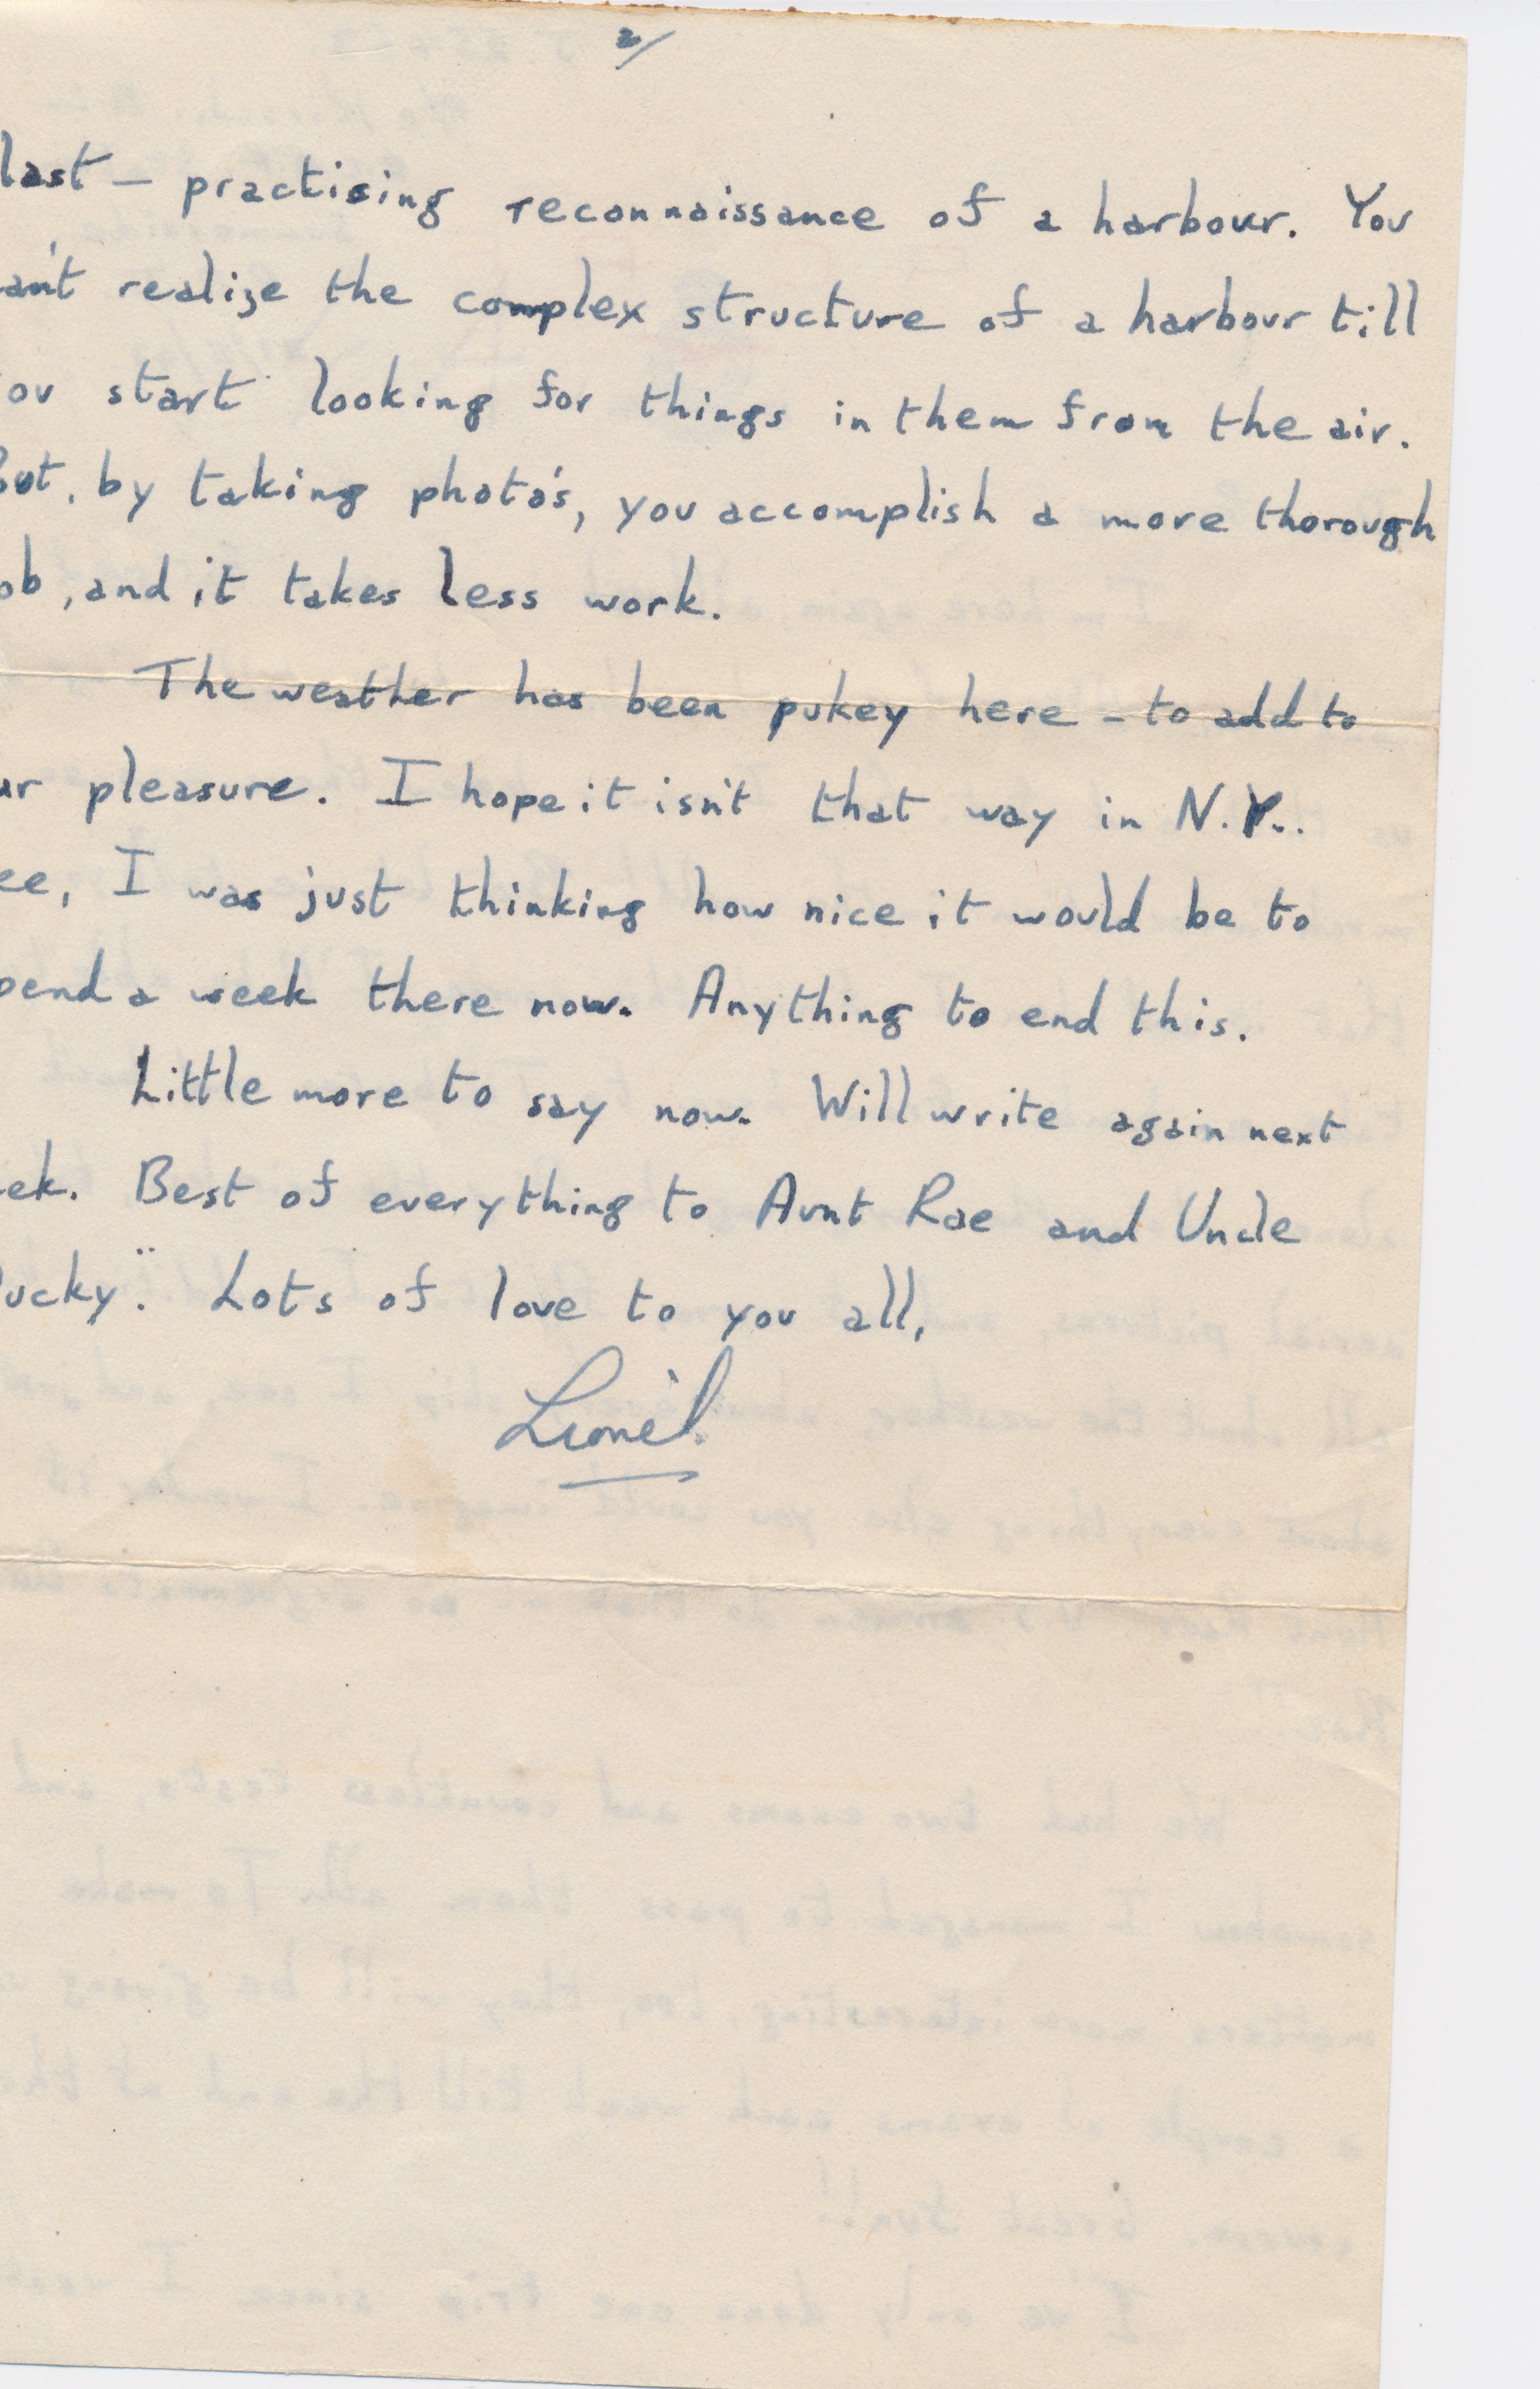 2/
last – practising reconnaissance of a harbour. You
an't realize the complex structure of a harbour till
ou start looking for things in them from the air.
But, by taking photo's, you accomplish a more thorough
ob, and it takes less work.
The weather has been pukey here – to add to
ur pleasure. I hope it isn't that way in N.Y..
ee, I was just thinking how nice it would be to
pend a week there now. Anything to end this.
Little more to say now. Will write again next
ek. Best of everything to Aunt Rae and Uncle
ucky". Lots of love to you all,
Lionel.